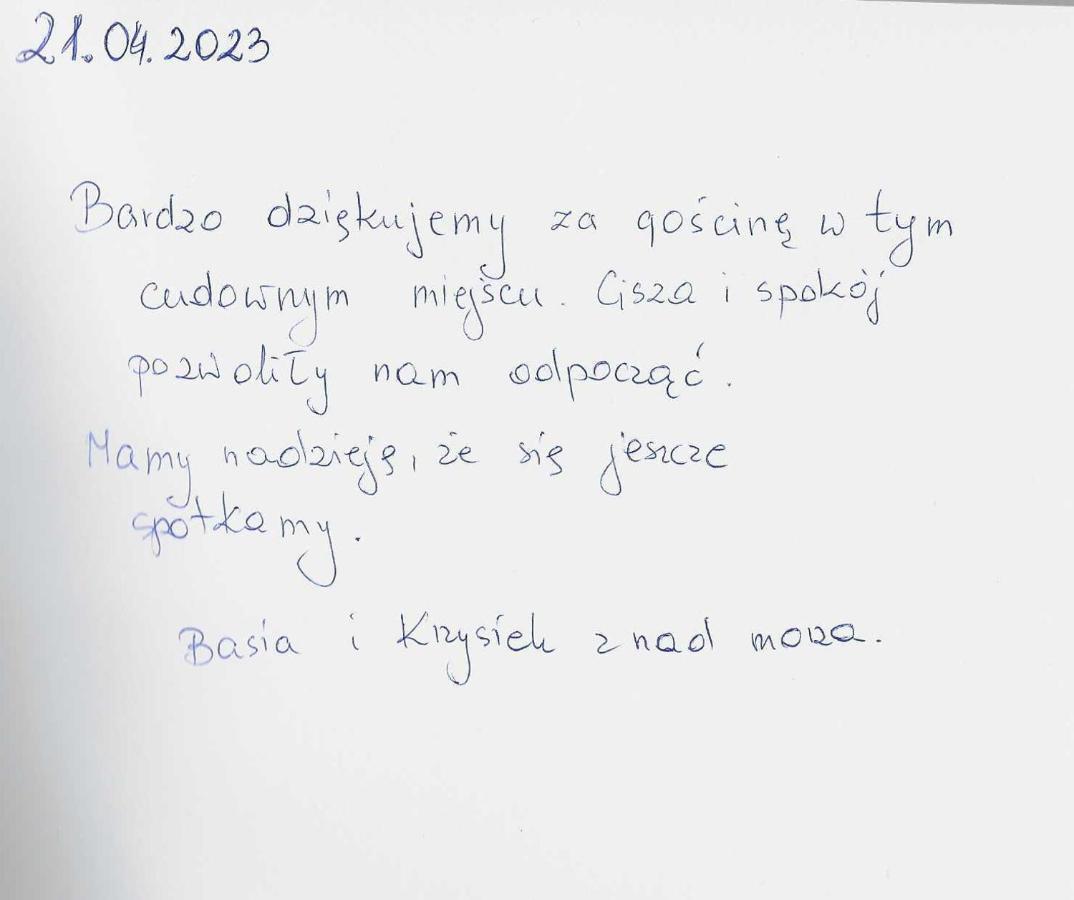 21.04.2023
Bardzo dziękujemy za gościnę w tym
cudownym miejscu. Cisza i spokój
pozwoliły nam odpocząć.
Mamy nadzieję, że się jeszcze
spotkamy.
Basia i Krzysiek znad morza.